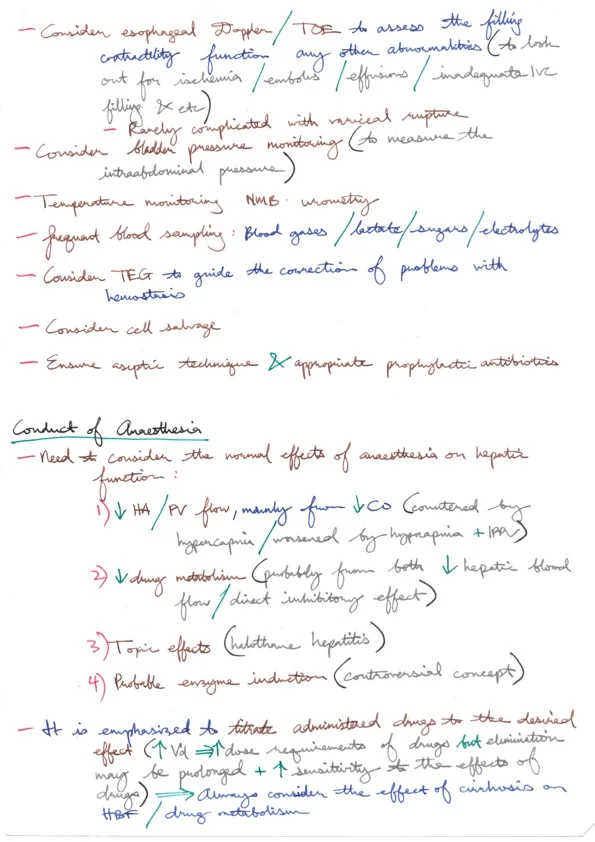 – Consider esophageal Doppler / TOE to assess the filling
contractility function any other abnormalities (to look
out for ischemia / embolus / effusions / inadequate IVC
filling & etc)
– Rarely complicated with variceal rupture
– Consider bladder pressure monitoring (to measure the
intraabdominal pressure)
– Temperature monitoring NMB urometry
– frequent blood sampling: Blood gases / lactate / sugars / electrolytes
– Consider TEG to guide the correction of problems with
hemostasis
– Consider cell salvage
– Ensure aseptic technique & appropriate prophylactic antibiotics
Conduct of Anaesthesia
– Need to consider the normal effects of anaesthesia on hepatic
function:
1) ↓ HA / PV flow, mainly from ↓ CO (countered by
hypercapnia / worsened by hypocapnia + IPPV)
2) ↓ drug metabolism (probably from both ↓ hepatic blood
flow / direct inhibitory effect)
3) Toxic effects (halothane hepatitis)
4) Probable enzyme induction (controversial concept)
– It is emphasized to titrate administered drugs to the desired
effect (↑ Vd ⇒ ↑ dose requirements of drugs but elimination
may be prolonged + ↑ sensitivity to the effects of
drugs) ⇒ Always consider the effect of cirrhosis on
HBF / drug metabolism